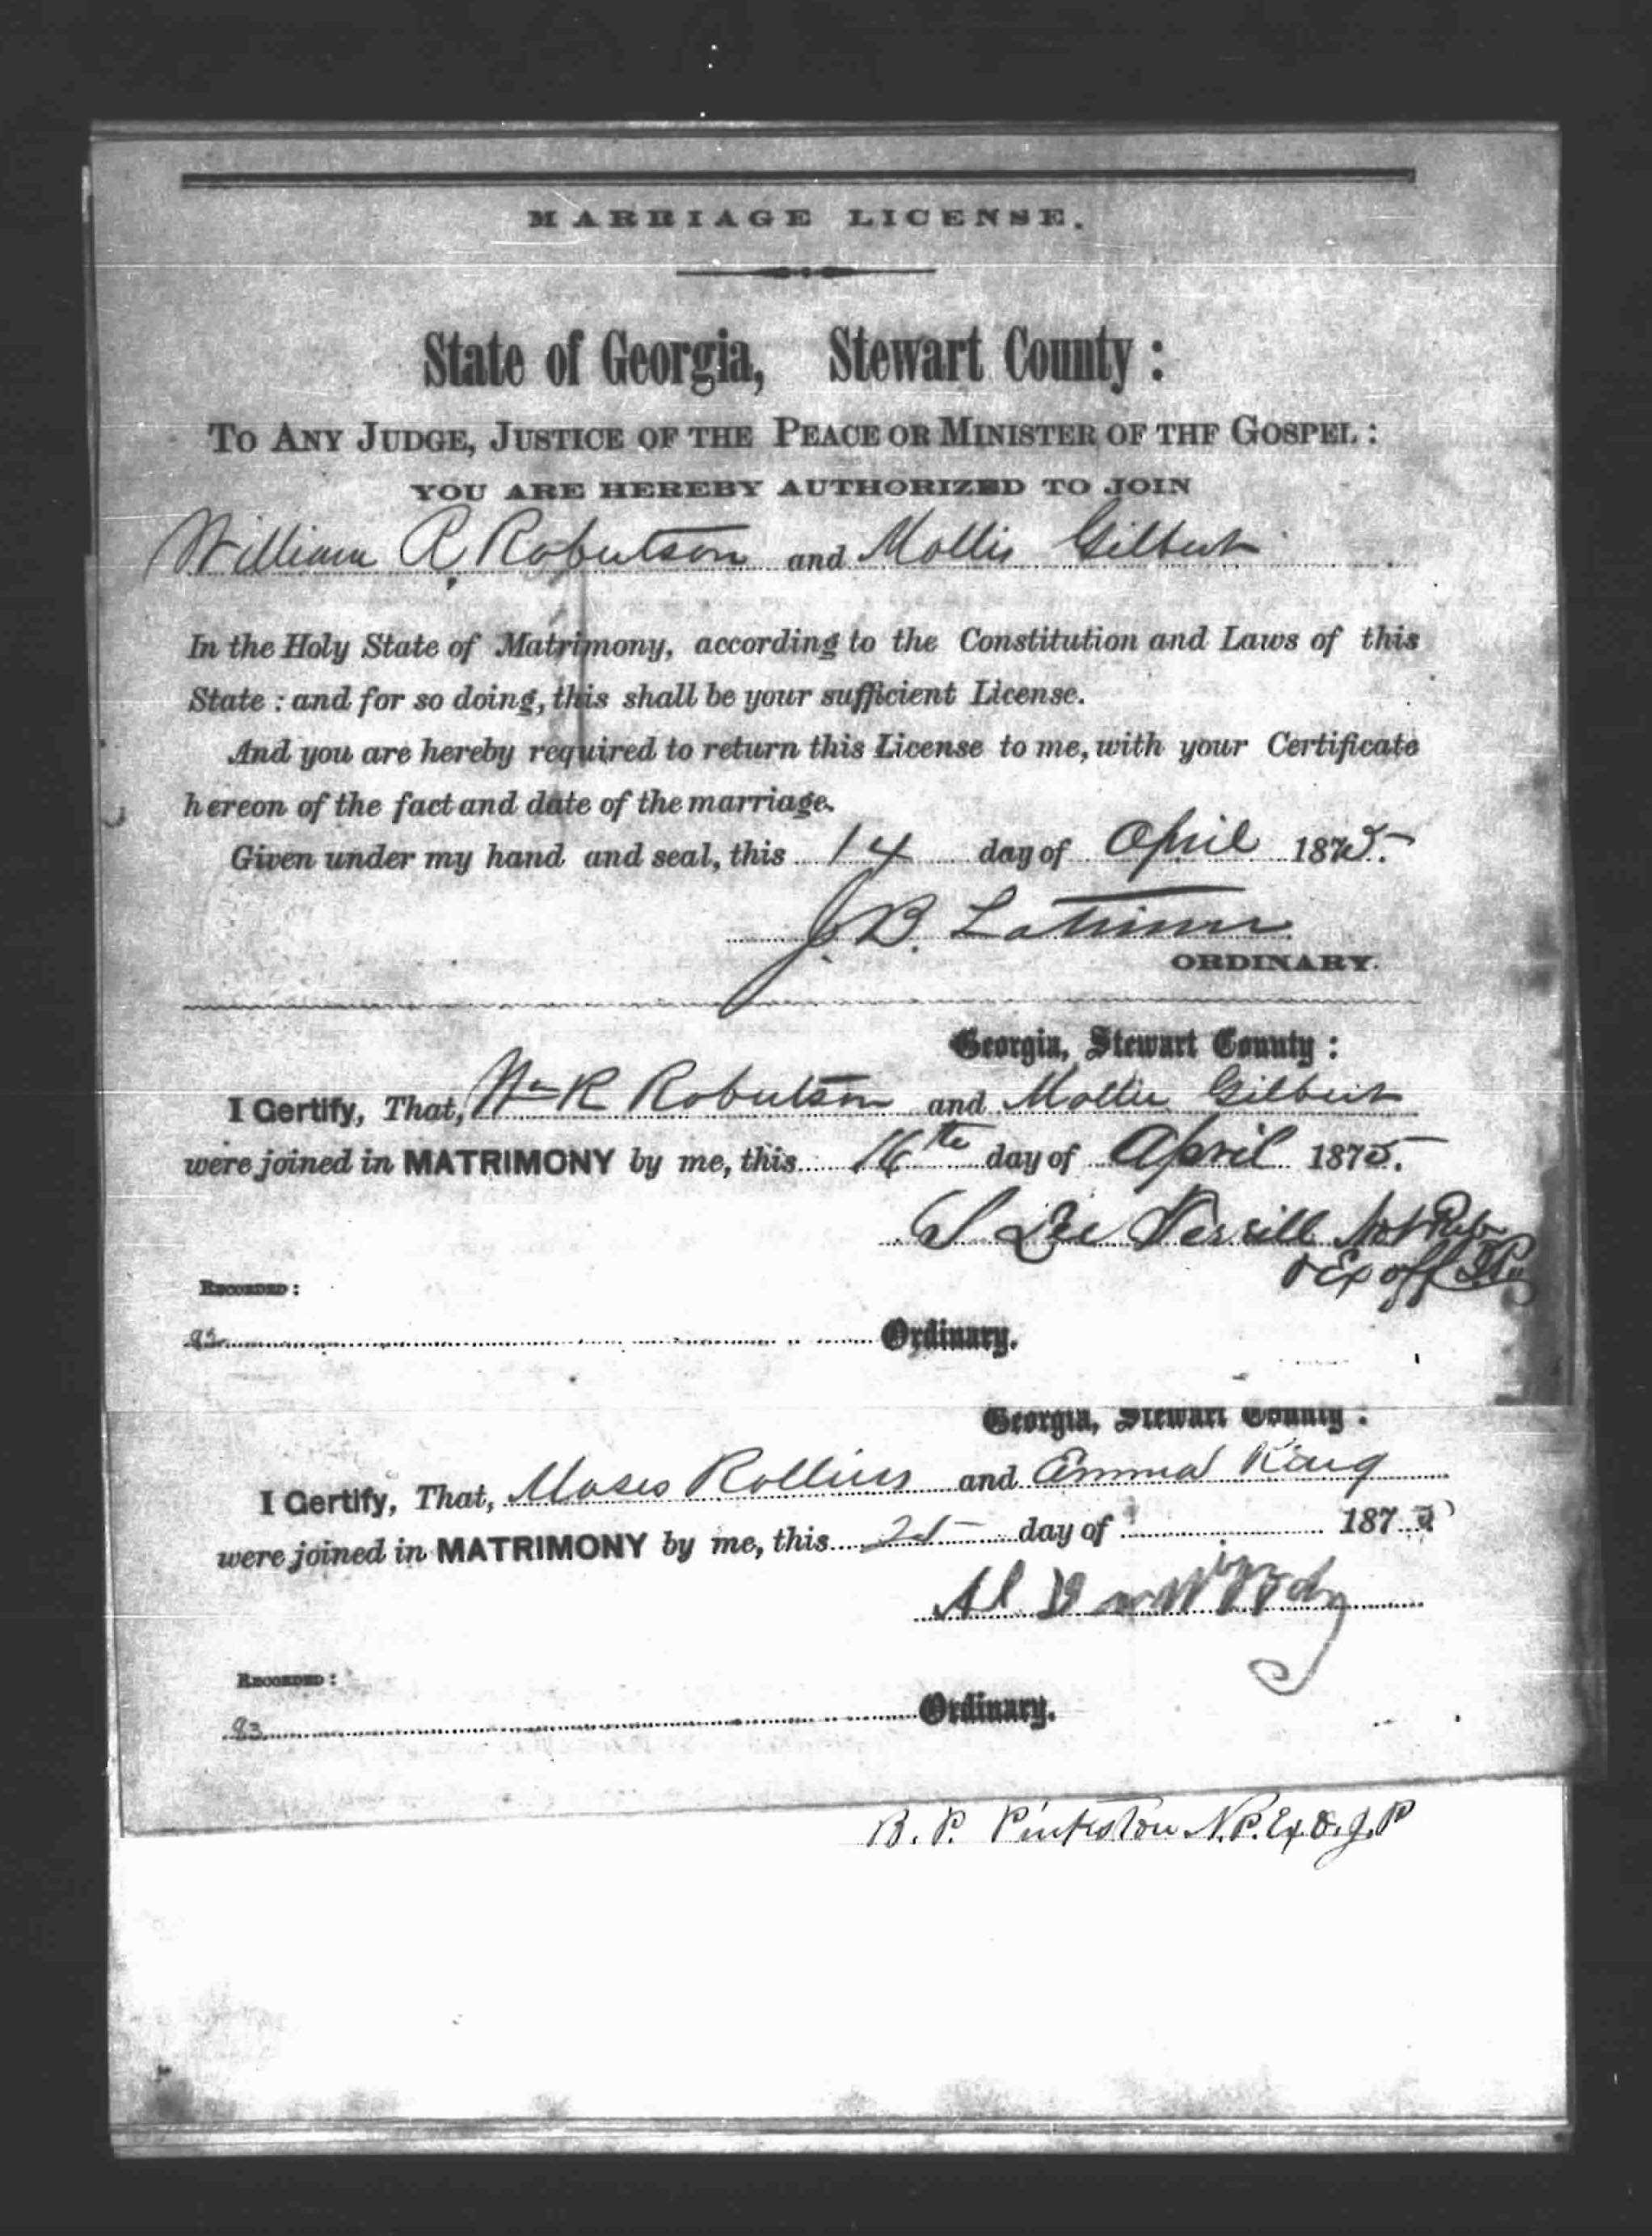 MARRIAGE LICENSE.
State of Georgia, Stewart County :
TO ANY JUDGE, JUSTICE OF THE PEACE OR MINISTER OF THE GOSPEL :
YOU ARE HEREBY AUTHORIZED TO JOIN
William R. Robertson and Mollie Gilbert
In the Holy State of Matrimony, according to the Constitution and Laws of this
State : and for so doing, this shall be your sufficient License.
And you are hereby required to return this License to me, with your Certificate
hereon of the fact and date of the marriage.
Given under my hand and seal, this 14 day of April 1875.
J. B. Latimer
ORDINARY.
Georgia, Stewart County :
I Certify, That, Wm R Robertson and Mollie Gilbert
were joined in MATRIMONY by me, this 16th day of April 1875.
Lee Not Pub
& Ex off J.P.
RECORDED :
Ordinary.
Georgia, Stewart County :
I Certify, That, Moses Rollins and Emma King
were joined in MATRIMONY by me, this day of 1875
RECORDED :
Ordinary.
B. P. Pinkston N.P. Ex O. J. P